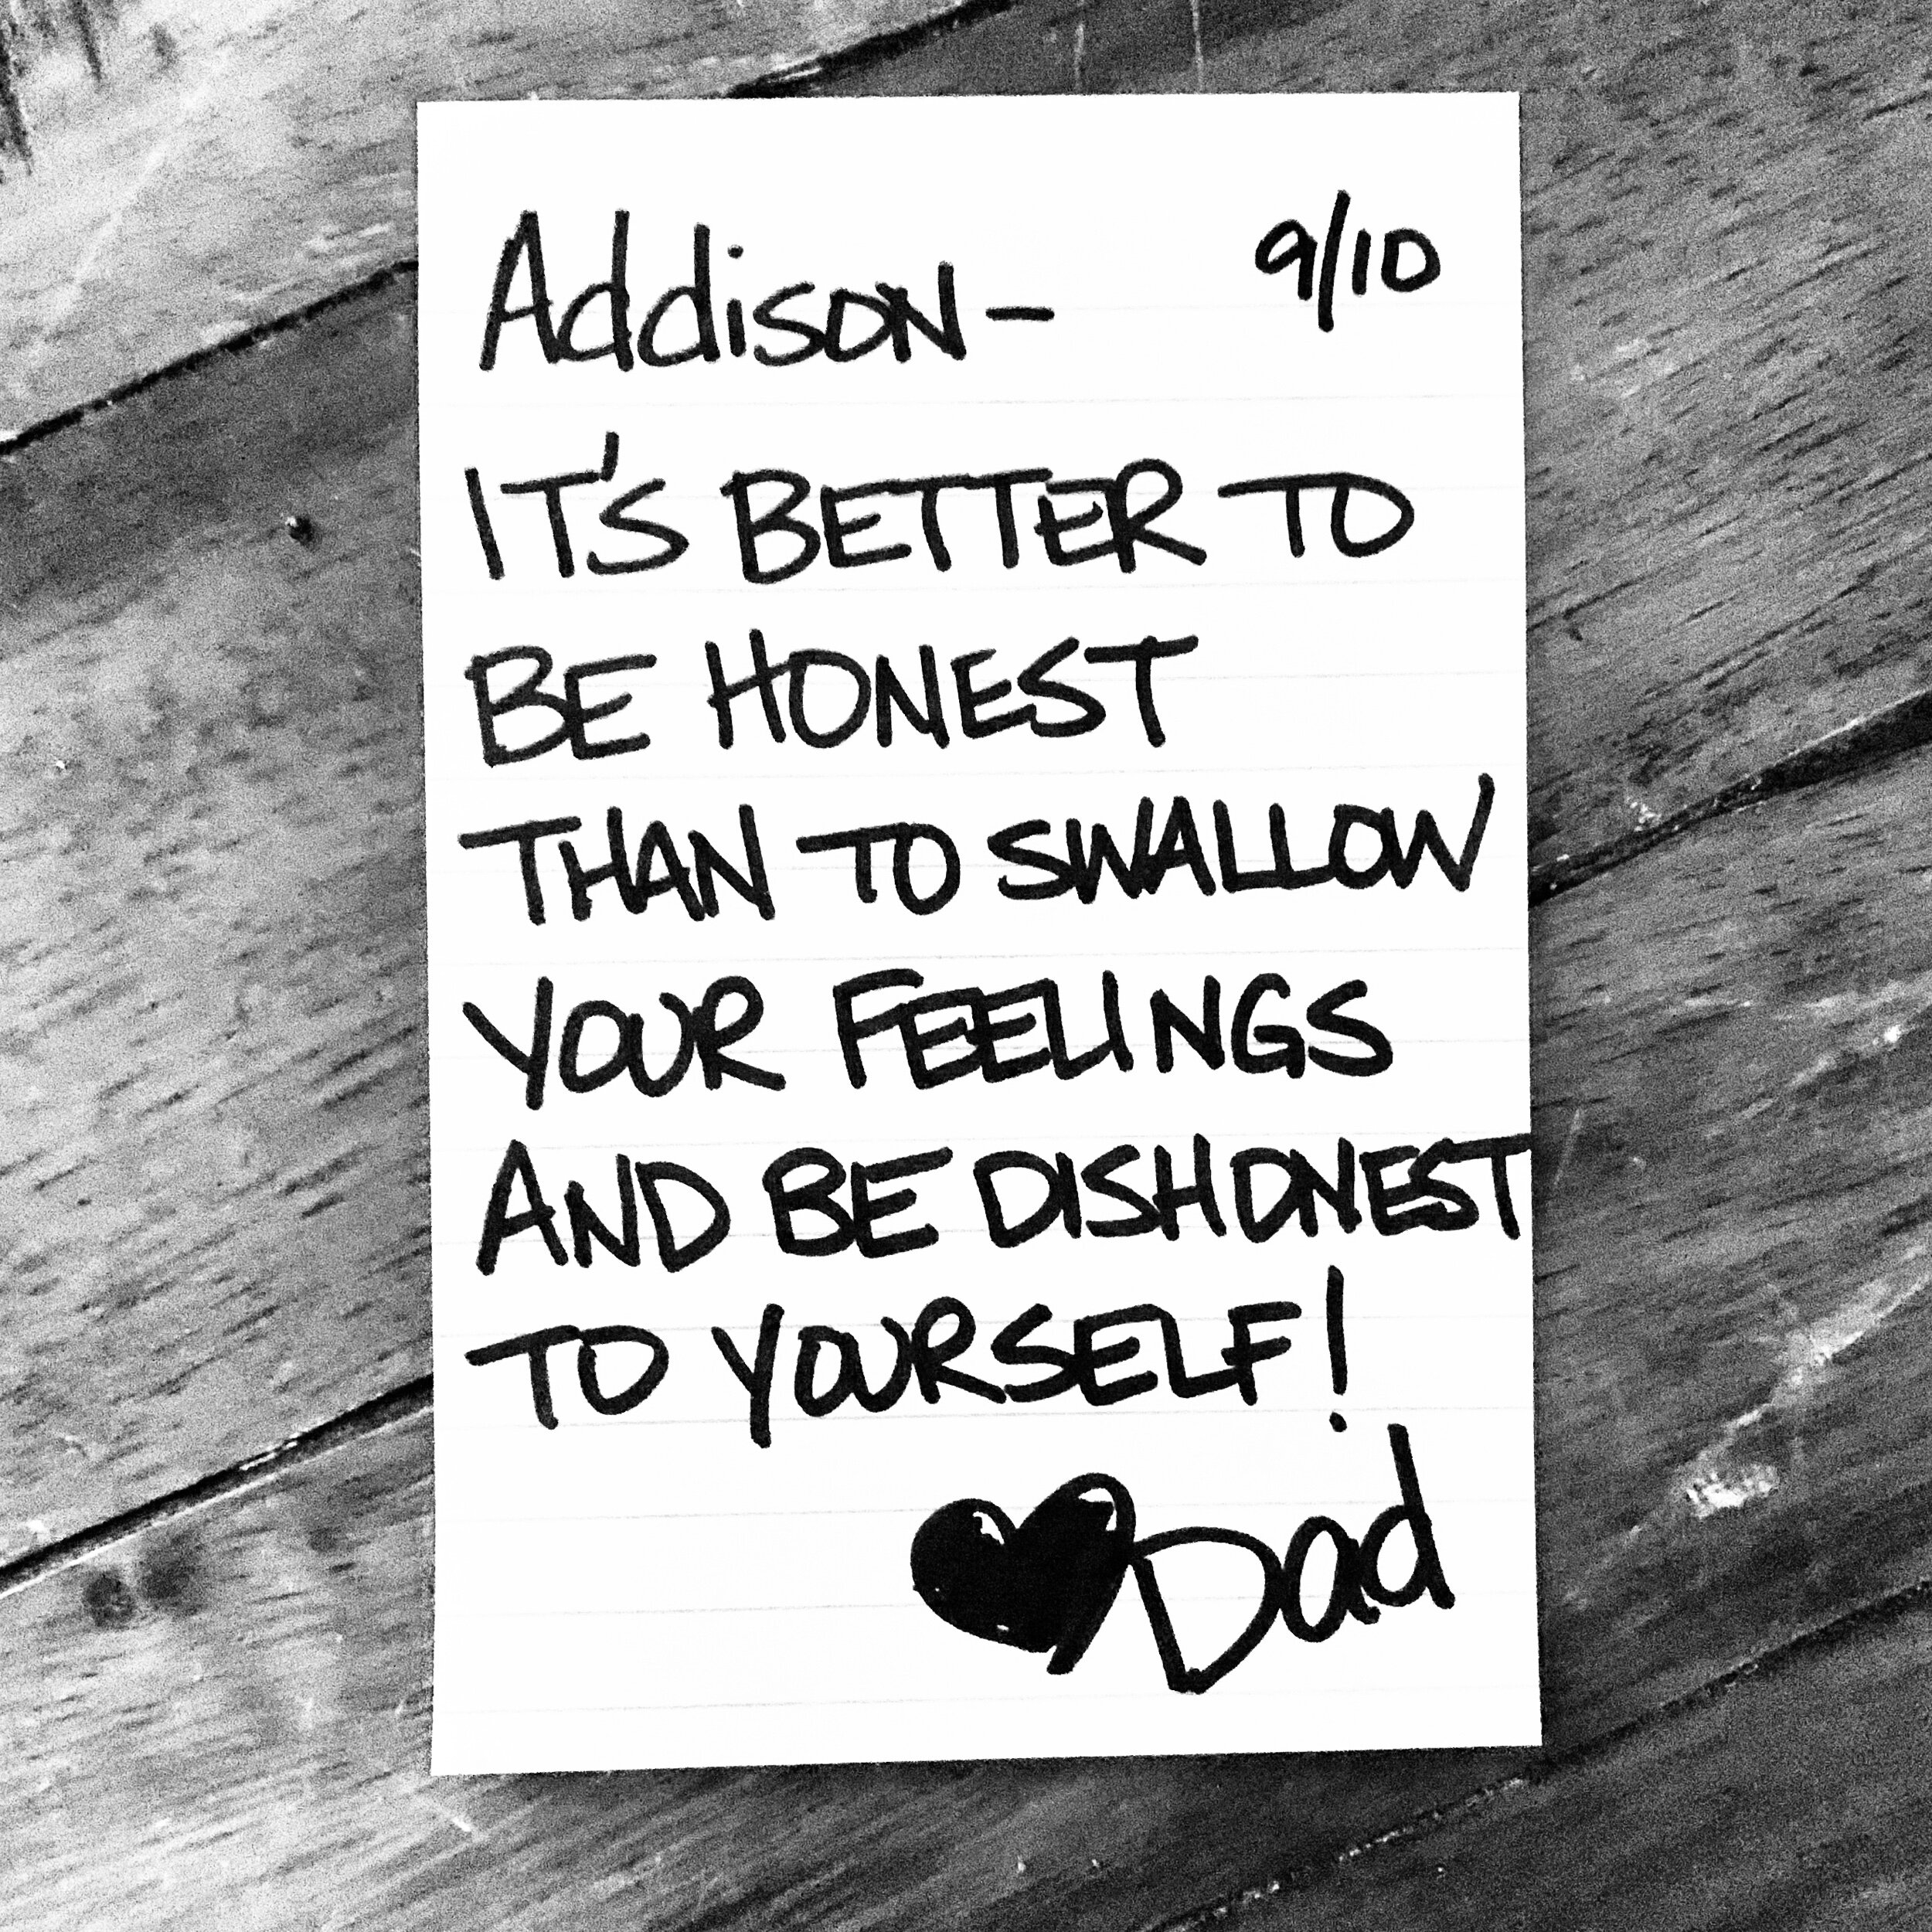 Addison- 9/10
IT'S BETTER TO
BE HONEST
THAN TO SWALLOW
YOUR FEELINGS
AND BE DISHONEST
TO YOURSELF!
Dad